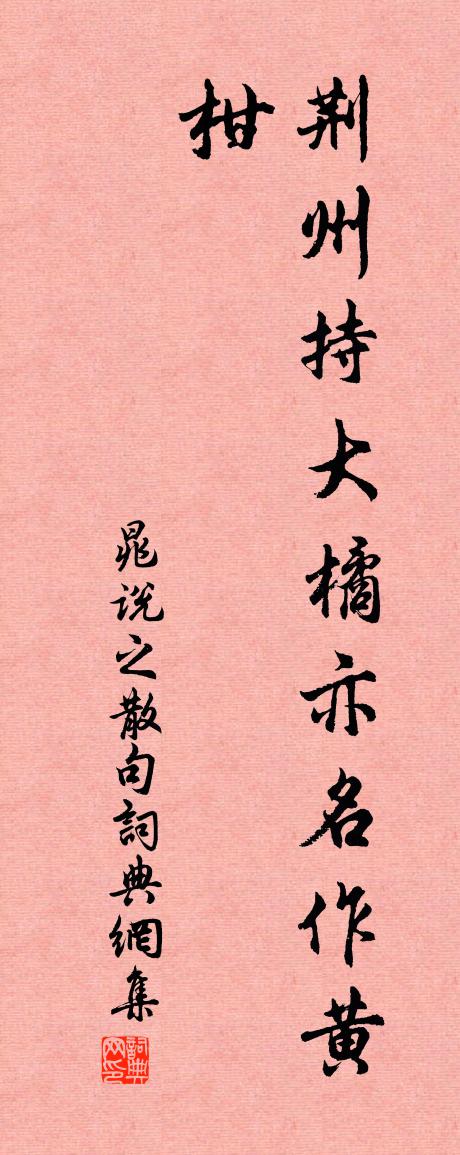 荆州持大橘亦名作黄
柑
晁说之散句詞典網集
詞典
网印